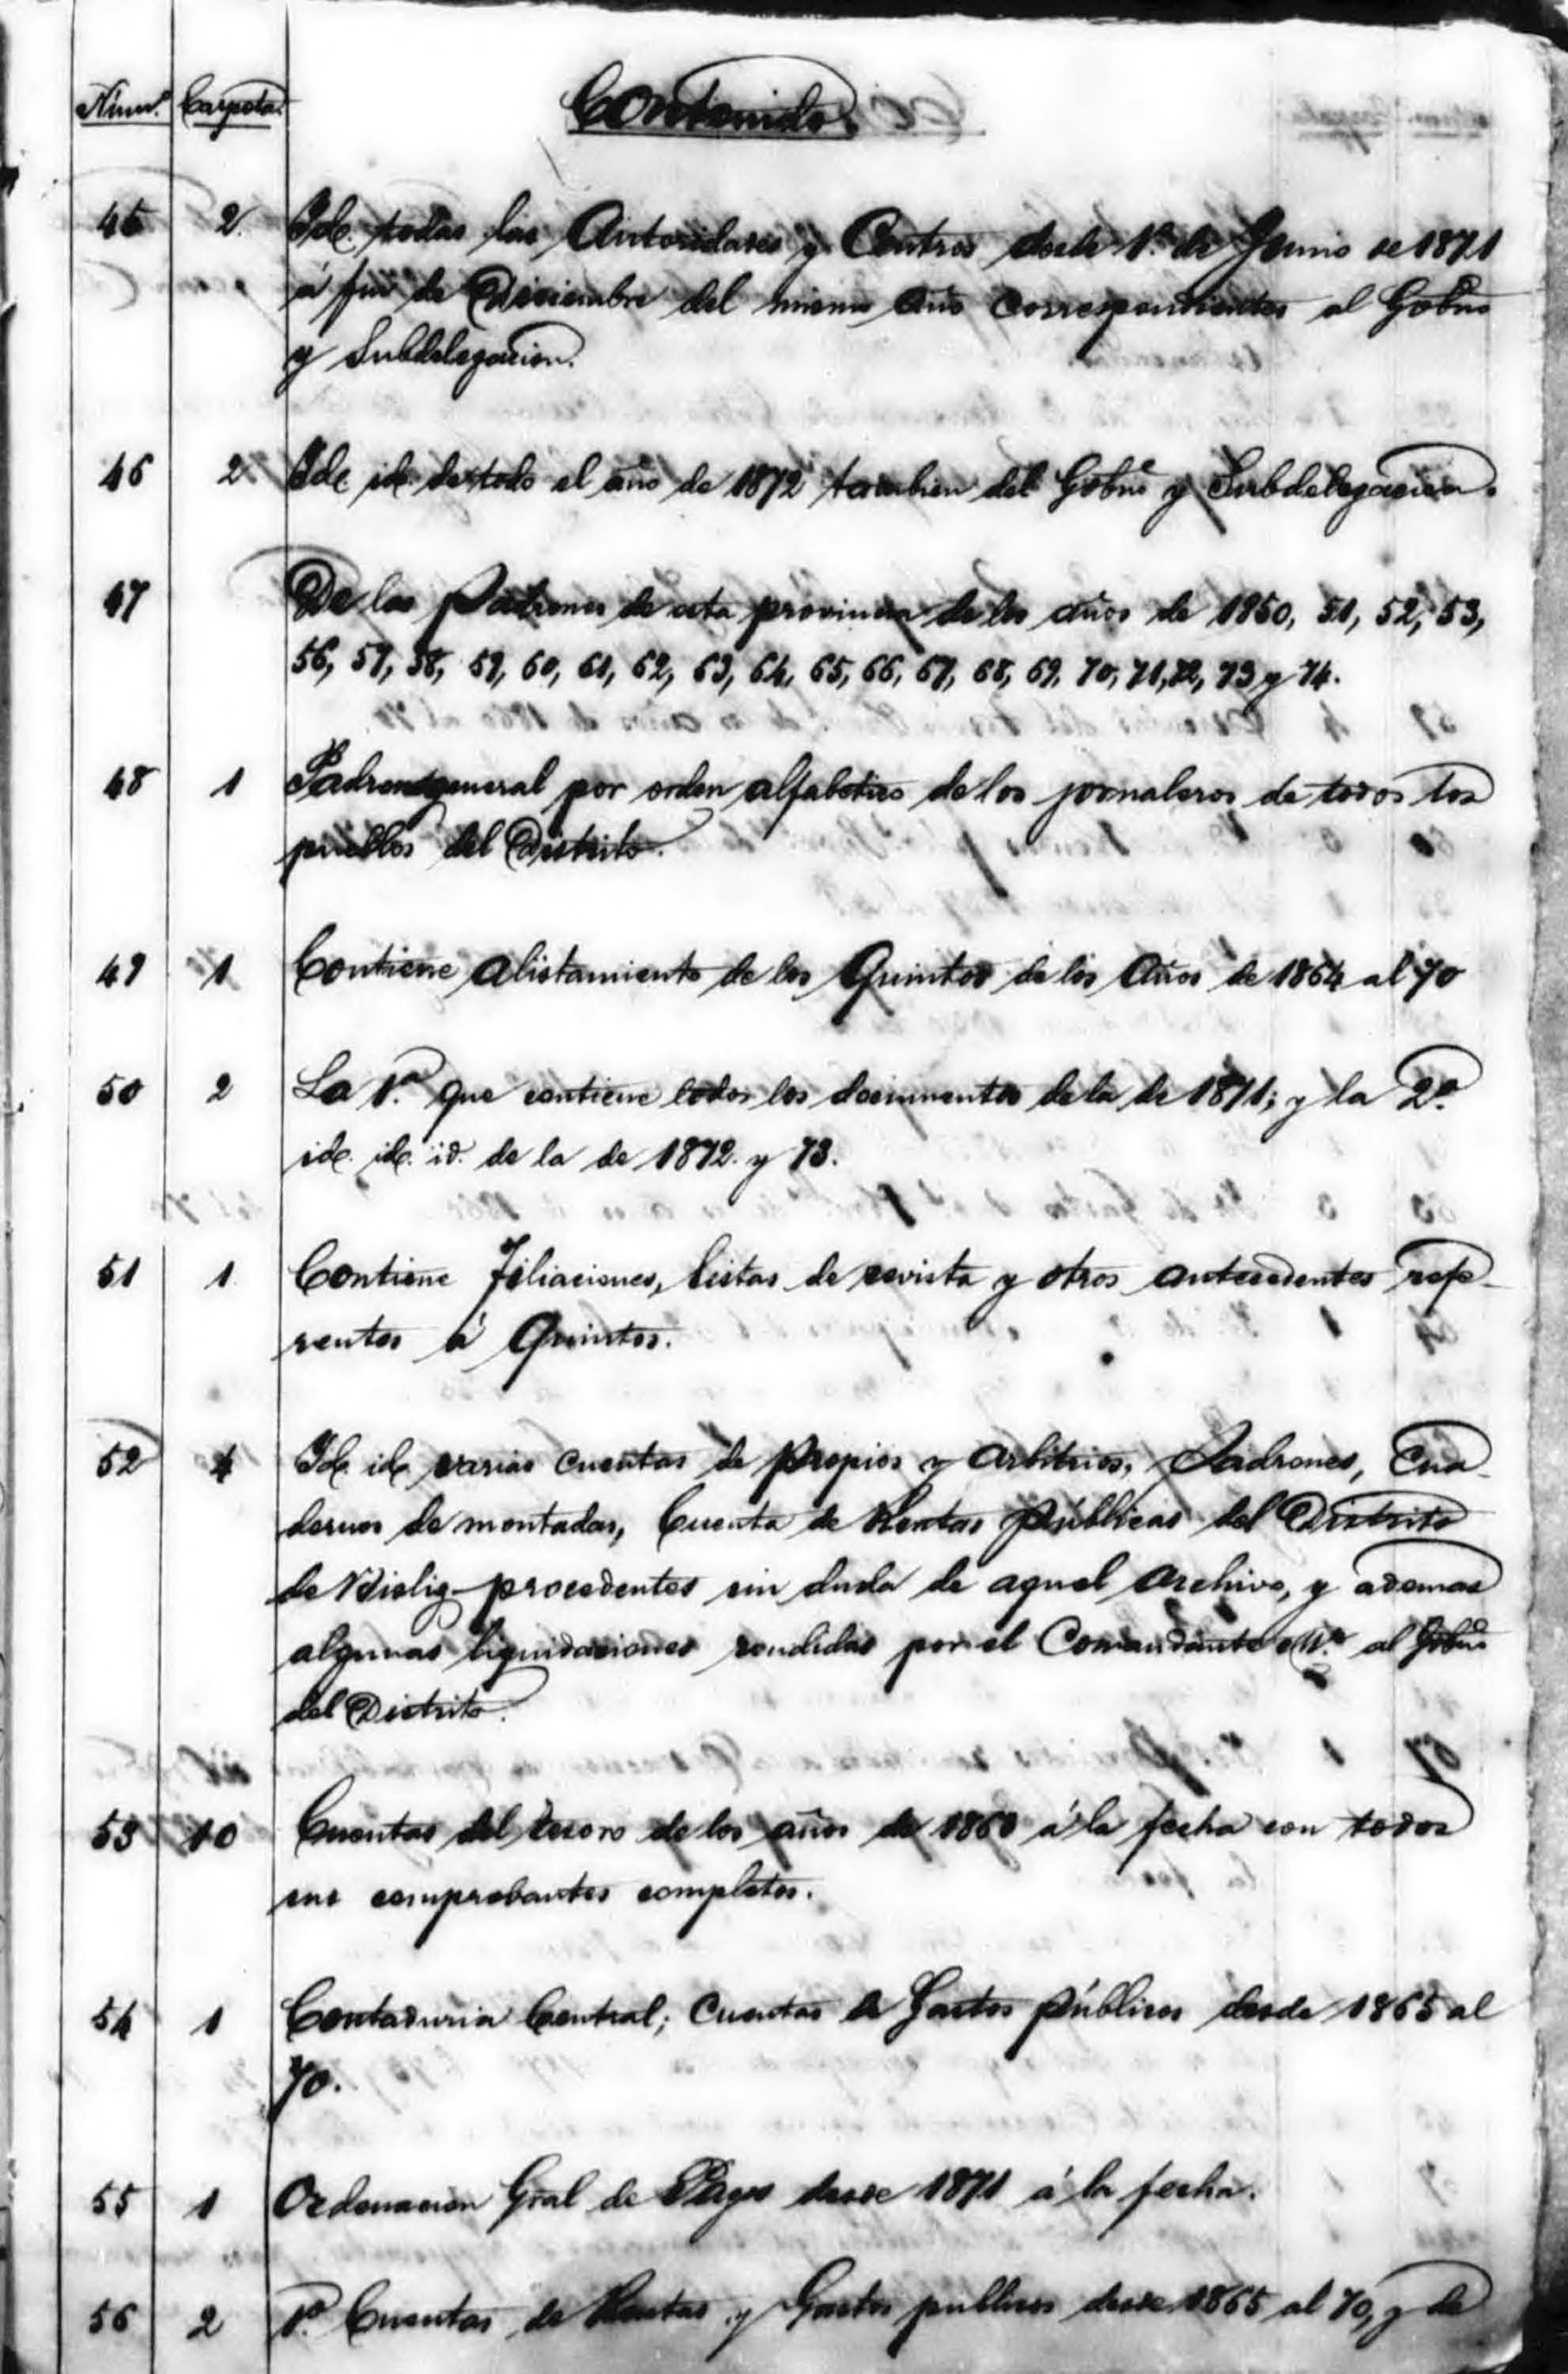 Núm.º Carpeta. Contenido.
45 2. Id. todas las Autoridades y Centros desde 1.º de Junio de 1871
á fin de Diciembre del mismo año correspondientes al Gobno
y Subdelegacion.
46 2 Id. id. de todo el año de 1872 tambien del Gobno y Subdelegacion.
47 De los Padrones de esta provincia de los años de 1850, 51, 52, 53,
56, 57, 58, 59, 60, 61, 62, 63, 64, 65, 66, 67, 68, 69, 70, 71, 72, 73 y 74.
48 1 Padron general por orden alfabetico de los jornaleros de todos los
pueblos del Distrito.
49 1 Contiene alistamiento de los Quintos de los Años de 1864 al 70
50 2 La 1.ª que contiene todos los documentos de la de 1871; y la 2ª
id. id. id. de la de 1872. y 73.
51 1 Contiene Filiaciones, listas de revista y otros antecedentes refe-
rentes á Quintos.
52 4 Id. id. varias cuentas de Propios y Arbitrios, Padrones, Cua-
dernos de montadas, Cuenta de Rentas públicas del Distrito
de Bislig procedentes sin duda de aquel Archivo, y ademas
algunas liquidaciones rendidas por el Comandante M.r al Gobno
del Distrito.
53 10 Cuentas del tesoro de los años de 1860 á la fecha con todos
sus comprobantes completos.
54 1 Contaduria Central; Cuentas de Gastos públicos desde 1865 al
70.
55 1 Ordenacion Gral de Pagos desde 1871 á la fecha.
56 2 1.ª Cuentas de Rentas y Gastos publicos desde 1865 al 70, y de